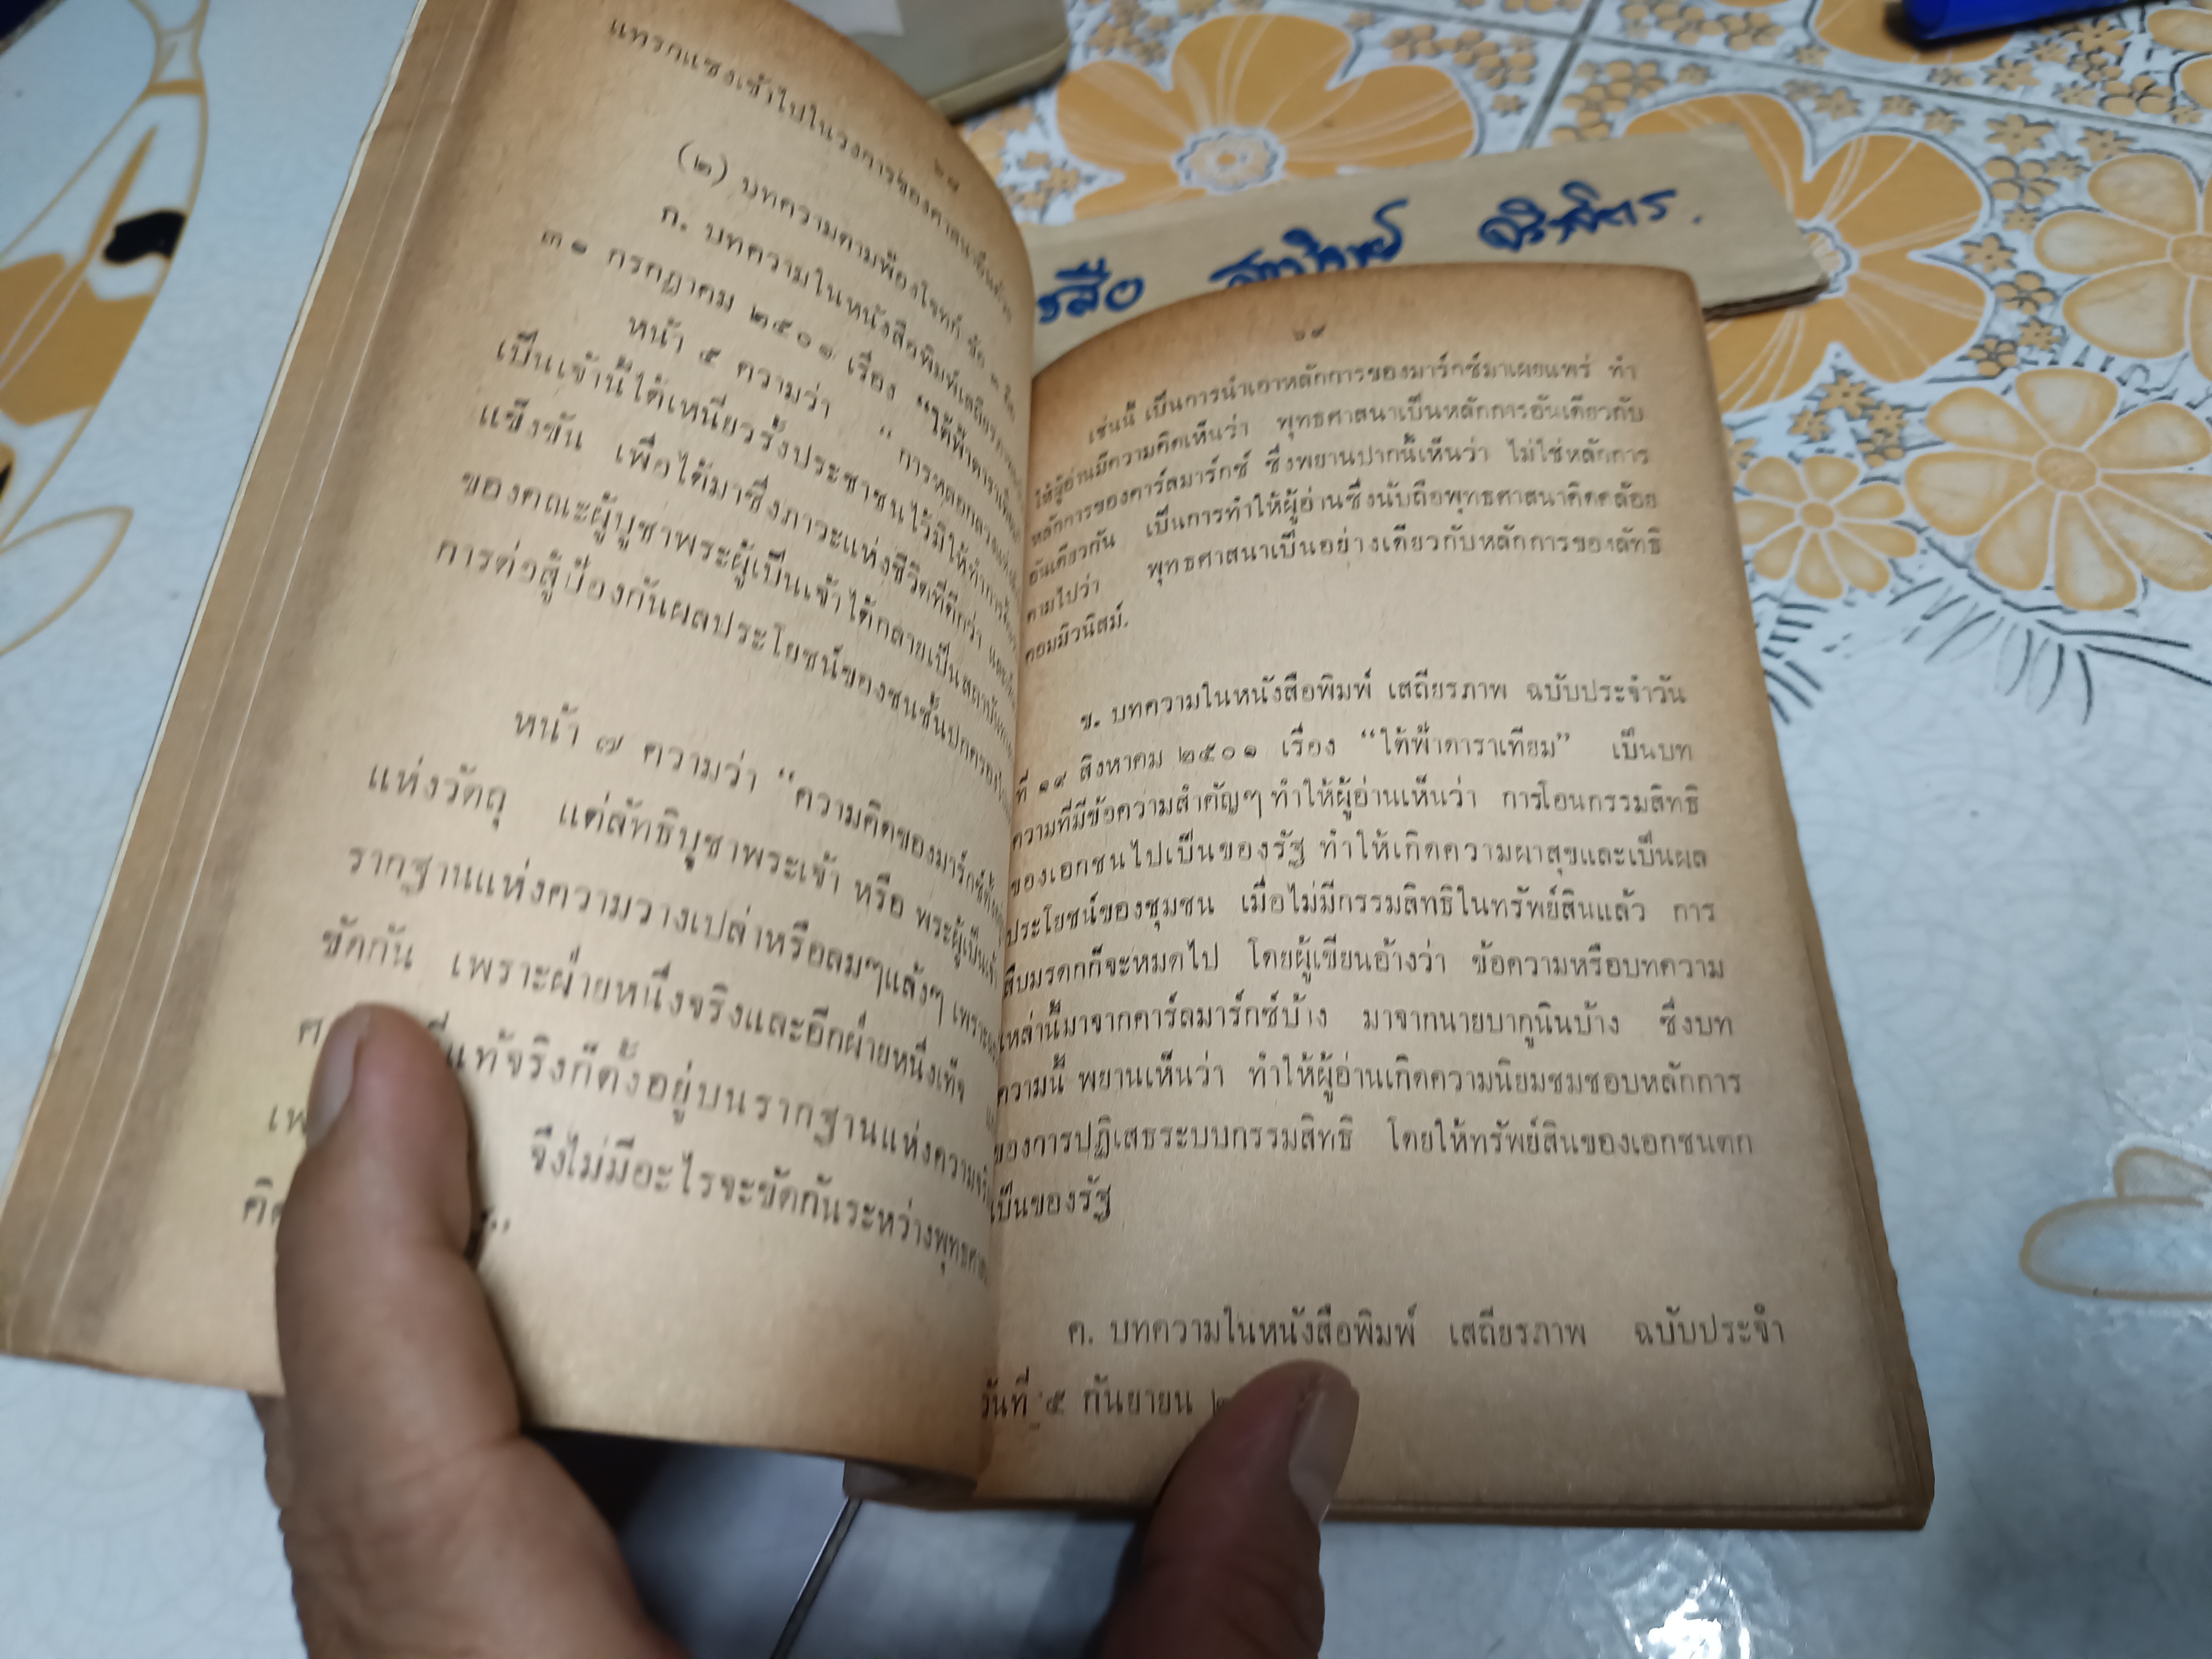 ๖๘
แทรกแซงเข้าไปในวงการของศาสนาอื่นด้วย
(๒) บทความตามฟ้องโจทก์ ข้อ
ก. บทความในหนังสือพิมพ์เสถียรภาพ
๓๑ กรกฎาคม ๒๕๐๑ เรื่อง “ใต้ฟ้าดาราเทียม
หน้า ๕ ความว่า “การหลอกลวง
เป็นเจ้านี้ได้เหนี่ยวรั้งประชาชนไว้มิให้ทำการ
แข็งขัน เพื่อได้มาซึ่งภาวะแห่งชีวิตที่ดีกว่า
ของคณะผู้บูชาพระผู้เป็นเจ้าได้กลายเป็นสถาบัน
การต่อสู้ป้องกันผลประโยชน์ของชนชั้นปกครอง
หน้า ๗ ความว่า “ความคิดของมาร์กซ์ตั้ง
แห่งวัตถุ แต่ลัทธิบูชาพระเจ้า หรือ พระผู้เป็นเจ้า
รากฐานแห่งความวางเปล่าหรือลมๆแล้งๆ เพราะ
ขัดกัน เพราะฝ่ายหนึ่งจริงและอีกฝ่ายหนึ่งเท็จ
แท้จริงก็ตั้งอยู่บนรากฐานแห่งความจริง
จึงไม่มีอะไรจะขัดกันระหว่างพุทธศาส
”
หรือ
๖๙
เช่นนี้ เป็นการนำเอาหลักการของมาร์กซ์มาเผยแพร่ ทำ
ให้ผู้อ่านมีความคิดเห็นว่า พุทธศาสนาเป็นหลักการอันเดียวกับ
หลักการของคาร์ลมาร์กซ์ ซึ่งพยานปากนี้เห็นว่า ไม่ใช่หลักการ
อันเดียวกัน เป็นการทำให้ผู้อ่านซึ่งนับถือพุทธศาสนาคิดคล้อย
ตามไปว่า พุทธศาสนาเป็นอย่างเดียวกับหลักการของลัทธิ
คอมมิวนิสม์.
ข. บทความในหนังสือพิมพ์ เสถียรภาพ ฉบับประจำวัน
ที่ ๑๙ สิงหาคม ๒๕๐๑ เรื่อง “ใต้ฟ้าดาราเทียม” เป็นบท
ความที่มีข้อความสำคัญๆ ทำให้ผู้อ่านเห็นว่า การโอนกรรมสิทธิ
ของเอกชนไปเป็นของรัฐ ทำให้เกิดความผาสุขและเป็นผล
ประโยชน์ของชุมชน เมื่อไม่มีกรรมสิทธิในทรัพย์สินแล้ว การ
สืบมรดกก็จะหมดไป โดยผู้เขียนอ้างว่า ข้อความหรือบทความ
เหล่านี้มาจากคาร์ลมาร์กซ์บ้าง มาจากนายบากูนินบ้าง ซึ่งบท
ความนี้ พยานเห็นว่า ทำให้ผู้อ่านเกิดความนิยมชมชอบหลักการ
ของการปฏิเสธระบบกรรมสิทธิ โดยให้ทรัพย์สินของเอกชนตก
เป็นของรัฐ
ค. บทความในหนังสือพิมพ์ เสถียรภาพ ฉบับประจำ
วันที่ ๕ กันยายน ๒